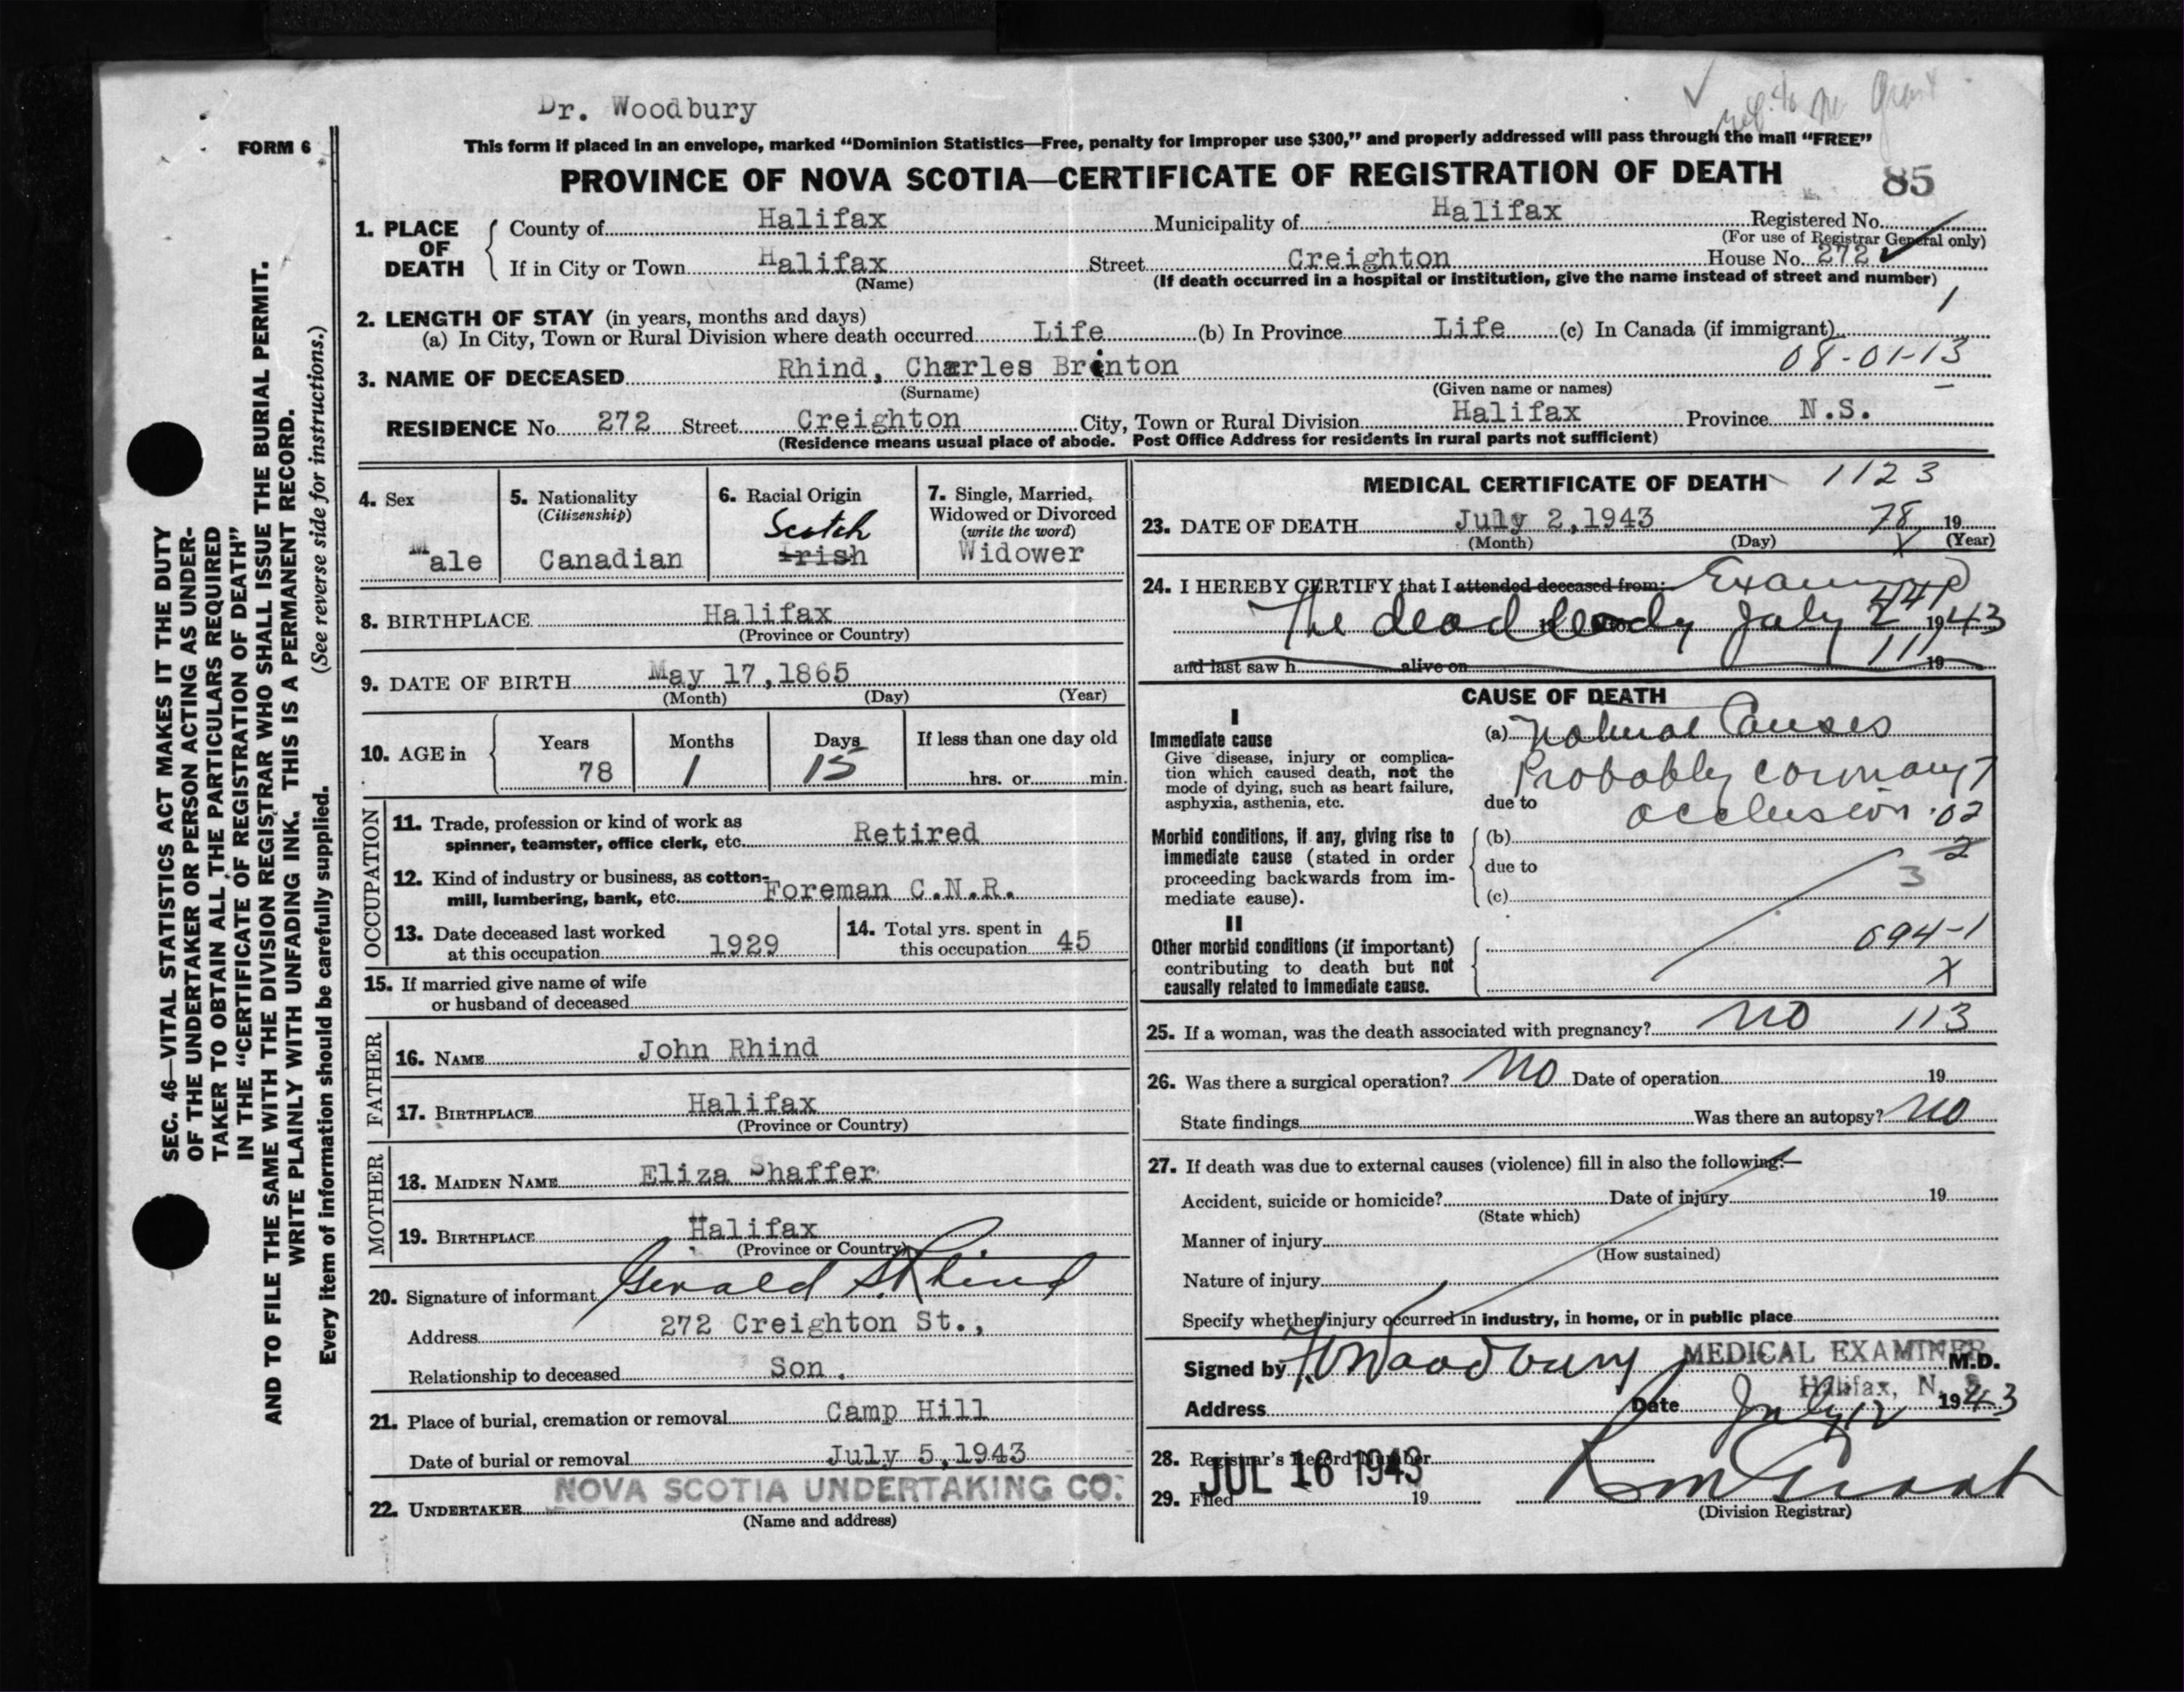 Dr. Woodbury
FORM 6
This form if placed in an envelope, marked “Dominion Statistics—Free, penalty for improper use $300,” and properly addressed will pass through the mail “FREE”
PROVINCE OF NOVA SCOTIA—CERTIFICATE OF REGISTRATION OF DEATH 85
1. PLACE OF DEATH
County of Halifax Municipality of Halifax Registered No.
(For use of Registrar General only)
If in City or Town Halifax Street Creighton House No. 272
(Name) (If death occurred in a hospital or institution, give the name instead of street and number)
1
2. LENGTH OF STAY (in years, months and days)
(a) In City, Town or Rural Division where death occurred Life (b) In Province Life (c) In Canada (if immigrant)
08-01-13
3. NAME OF DECEASED Rhind, Charles Brinton
(Surname) (Given name or names)
RESIDENCE No. 272 Street Creighton City, Town or Rural Division Halifax Province N.S.
(Residence means usual place of abode. Post Office Address for residents in rural parts not sufficient)
4. Sex
Male
5. Nationality
(Citizenship)
Canadian
6. Racial Origin
Scotch
Irish
7. Single, Married,
Widowed or Divorced
(write the word)
Widower
8. BIRTHPLACE Halifax
(Province or Country)
9. DATE OF BIRTH May 17,1865
(Month) (Day) (Year)
10. AGE in
Years Months Days If less than one day old
78 1 15 hrs. or min.
OCCUPATION
11. Trade, profession or kind of work as
spinner, teamster, office clerk, etc. Retired
12. Kind of industry or business, as cotton-
mill, lumbering, bank, etc. Foreman C.N.R.
13. Date deceased last worked
at this occupation 1929
14. Total yrs. spent in
this occupation 45
15. If married give name of wife
or husband of deceased
FATHER
16. NAME John Rhind
17. BIRTHPLACE Halifax
(Province or Country)
MOTHER
18. MAIDEN NAME Eliza Shaffer
19. BIRTHPLACE Halifax
(Province or Country)
20. Signature of informant Gerald S. Rhind
Address 272 Creighton St.,
Relationship to deceased Son.
21. Place of burial, cremation or removal Camp Hill
Date of burial or removal July 5,1943
22. UNDERTAKER NOVA SCOTIA UNDERTAKING CO.
(Name and address)
MEDICAL CERTIFICATE OF DEATH 1123
23. DATE OF DEATH July 2,1943 78 19
(Month) (Day) X (Year)
24. I HEREBY CERTIFY that I attended deceased from: Examined
The dead body July 2 1943
and last saw h alive on 111 19
CAUSE OF DEATH
I
Immediate cause
Give disease, injury or complica-
tion which caused death, not the
mode of dying, such as heart failure,
asphyxia, asthenia, etc.
(a) Natural Causes
Probably coronary
due to occlusion .02
Morbid conditions, if any, giving rise to
immediate cause (stated in order
proceeding backwards from im-
mediate cause).
(b) 2
due to 3
(c)
II
Other morbid conditions (if important)
contributing to death but not
causally related to immediate cause.
094-1
X
25. If a woman, was the death associated with pregnancy? No 113
26. Was there a surgical operation? No Date of operation 19
State findings Was there an autopsy? No
27. If death was due to external causes (violence) fill in also the following:—
Accident, suicide or homicide? Date of injury 19
(State which)
Manner of injury
(How sustained)
Nature of injury
Specify whether injury occurred in industry, in home, or in public place
Signed by Woodbury MEDICAL EXAMINER M.D.
Halifax, N. S.
Address Date July 12 1943
28. Registrar's Record Number
JUL 16 1943
29. Filed 19
(Division Registrar)
SEC. 46—VITAL STATISTICS ACT MAKES IT THE DUTY
OF THE UNDERTAKER OR PERSON ACTING AS UNDER-
TAKER TO OBTAIN ALL THE PARTICULARS REQUIRED
IN THE “CERTIFICATE OF REGISTRATION OF DEATH”
AND TO FILE THE SAME WITH THE DIVISION REGISTRAR WHO SHALL ISSUE THE BURIAL PERMIT.
WRITE PLAINLY WITH UNFADING INK. THIS IS A PERMANENT RECORD.
Every item of information should be carefully supplied. (See reverse side for instructions.)